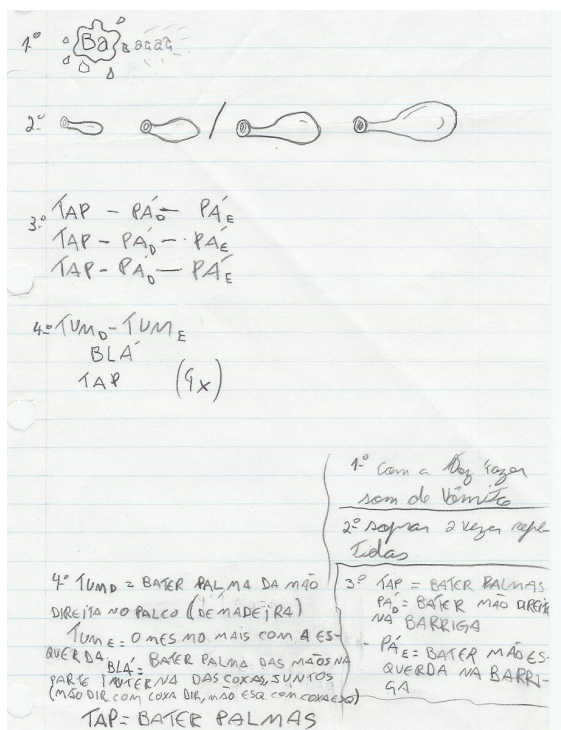 1º Ba agag
2º /
3º TAP - PÁD - PÁE
TAP - PÁD - PÁE
TAP - PÁD - PÁE
4º TUMD - TUME
BLÁ
TAP (4x)
1º Com a Voz fazer
som de Vômito
2º soprar 2 vezes repe-
tidas
3º TAP = BATER PALMAS
PÁD = BATER MÃO DIREITA
NA BARRIGA
- PÁE = BATER MÃO ES-
QUERDA NA BARRI-
GA
4º TUMD = BATER PALMA DA MÃO
DIREITA NO PALCO (DE MADEIRA)
TUME = O MESMO MAIS COM A ES-
QUERDA.
BLÁ = BATER PALMA DAS MÃOS NA
PARTE INTERNA DAS COXAS, JUNTOS
(MÃO DIR COM COXA DIR, MÃO ESQ COM COXA ESQ)
TAP = BATER PALMAS